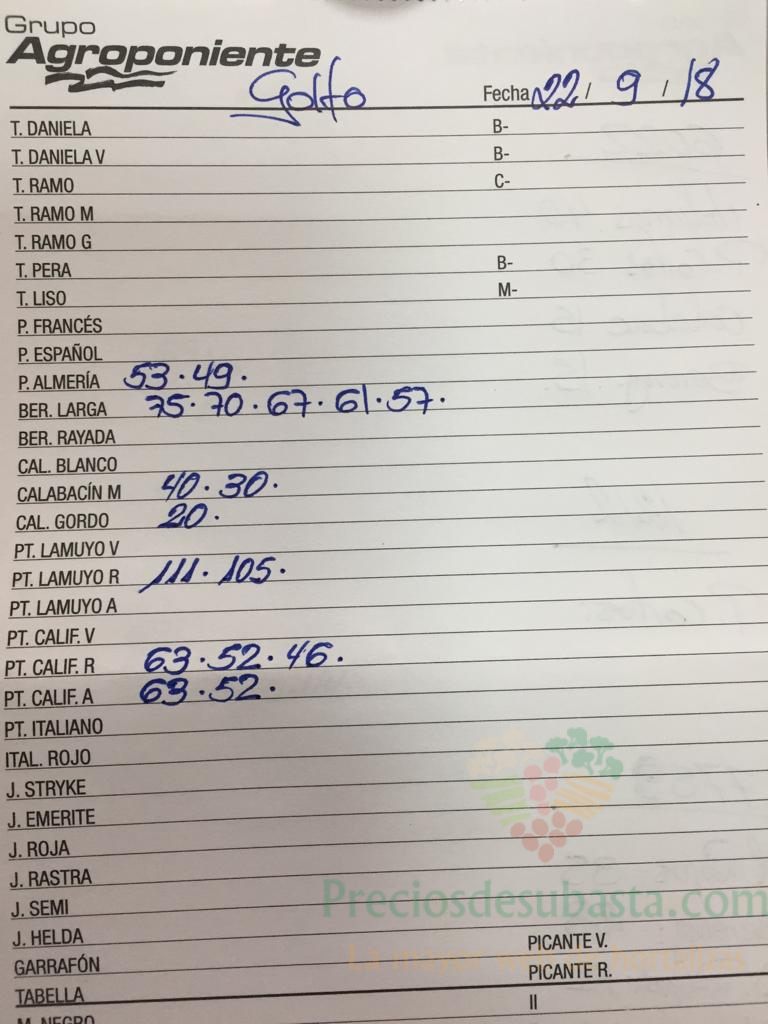 Grupo
Agroponiente
Golfo Fecha 22 / 9 / 18
T. DANIELA B-
T. DANIELA V B-
T. RAMO C-
T. RAMO M
T. RAMO G
T. PERA B-
T. LISO M-
P. FRANCÉS
P. ESPAÑOL
P. ALMERÍA 53 · 49 ·
BER. LARGA 75 · 70 · 67 · 61 · 57 ·
BER. RAYADA
CAL. BLANCO
CALABACÍN M 40 · 30 ·
CAL. GORDO 20 ·
PT. LAMUYO V
PT. LAMUYO R 111 · 105 ·
PT. LAMUYO A
PT. CALIF. V
PT. CALIF. R 63 · 52 · 46 ·
PT. CALIF. A 63 · 52 ·
PT. ITALIANO
ITAL. ROJO
J. STRYKE
J. EMERITE
J. ROJA
J. RASTRA
J. SEMI
Preciosdesubasta.com
J. HELDA PICANTE V.
La mayor web de hortalizas
GARRAFÓN PICANTE R.
TABELLA II
M. NEGRO